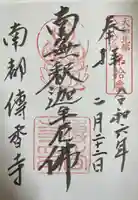 奉拜
令和六年
二月二十二日
南無釈迦牟尼佛
南都傳香寺